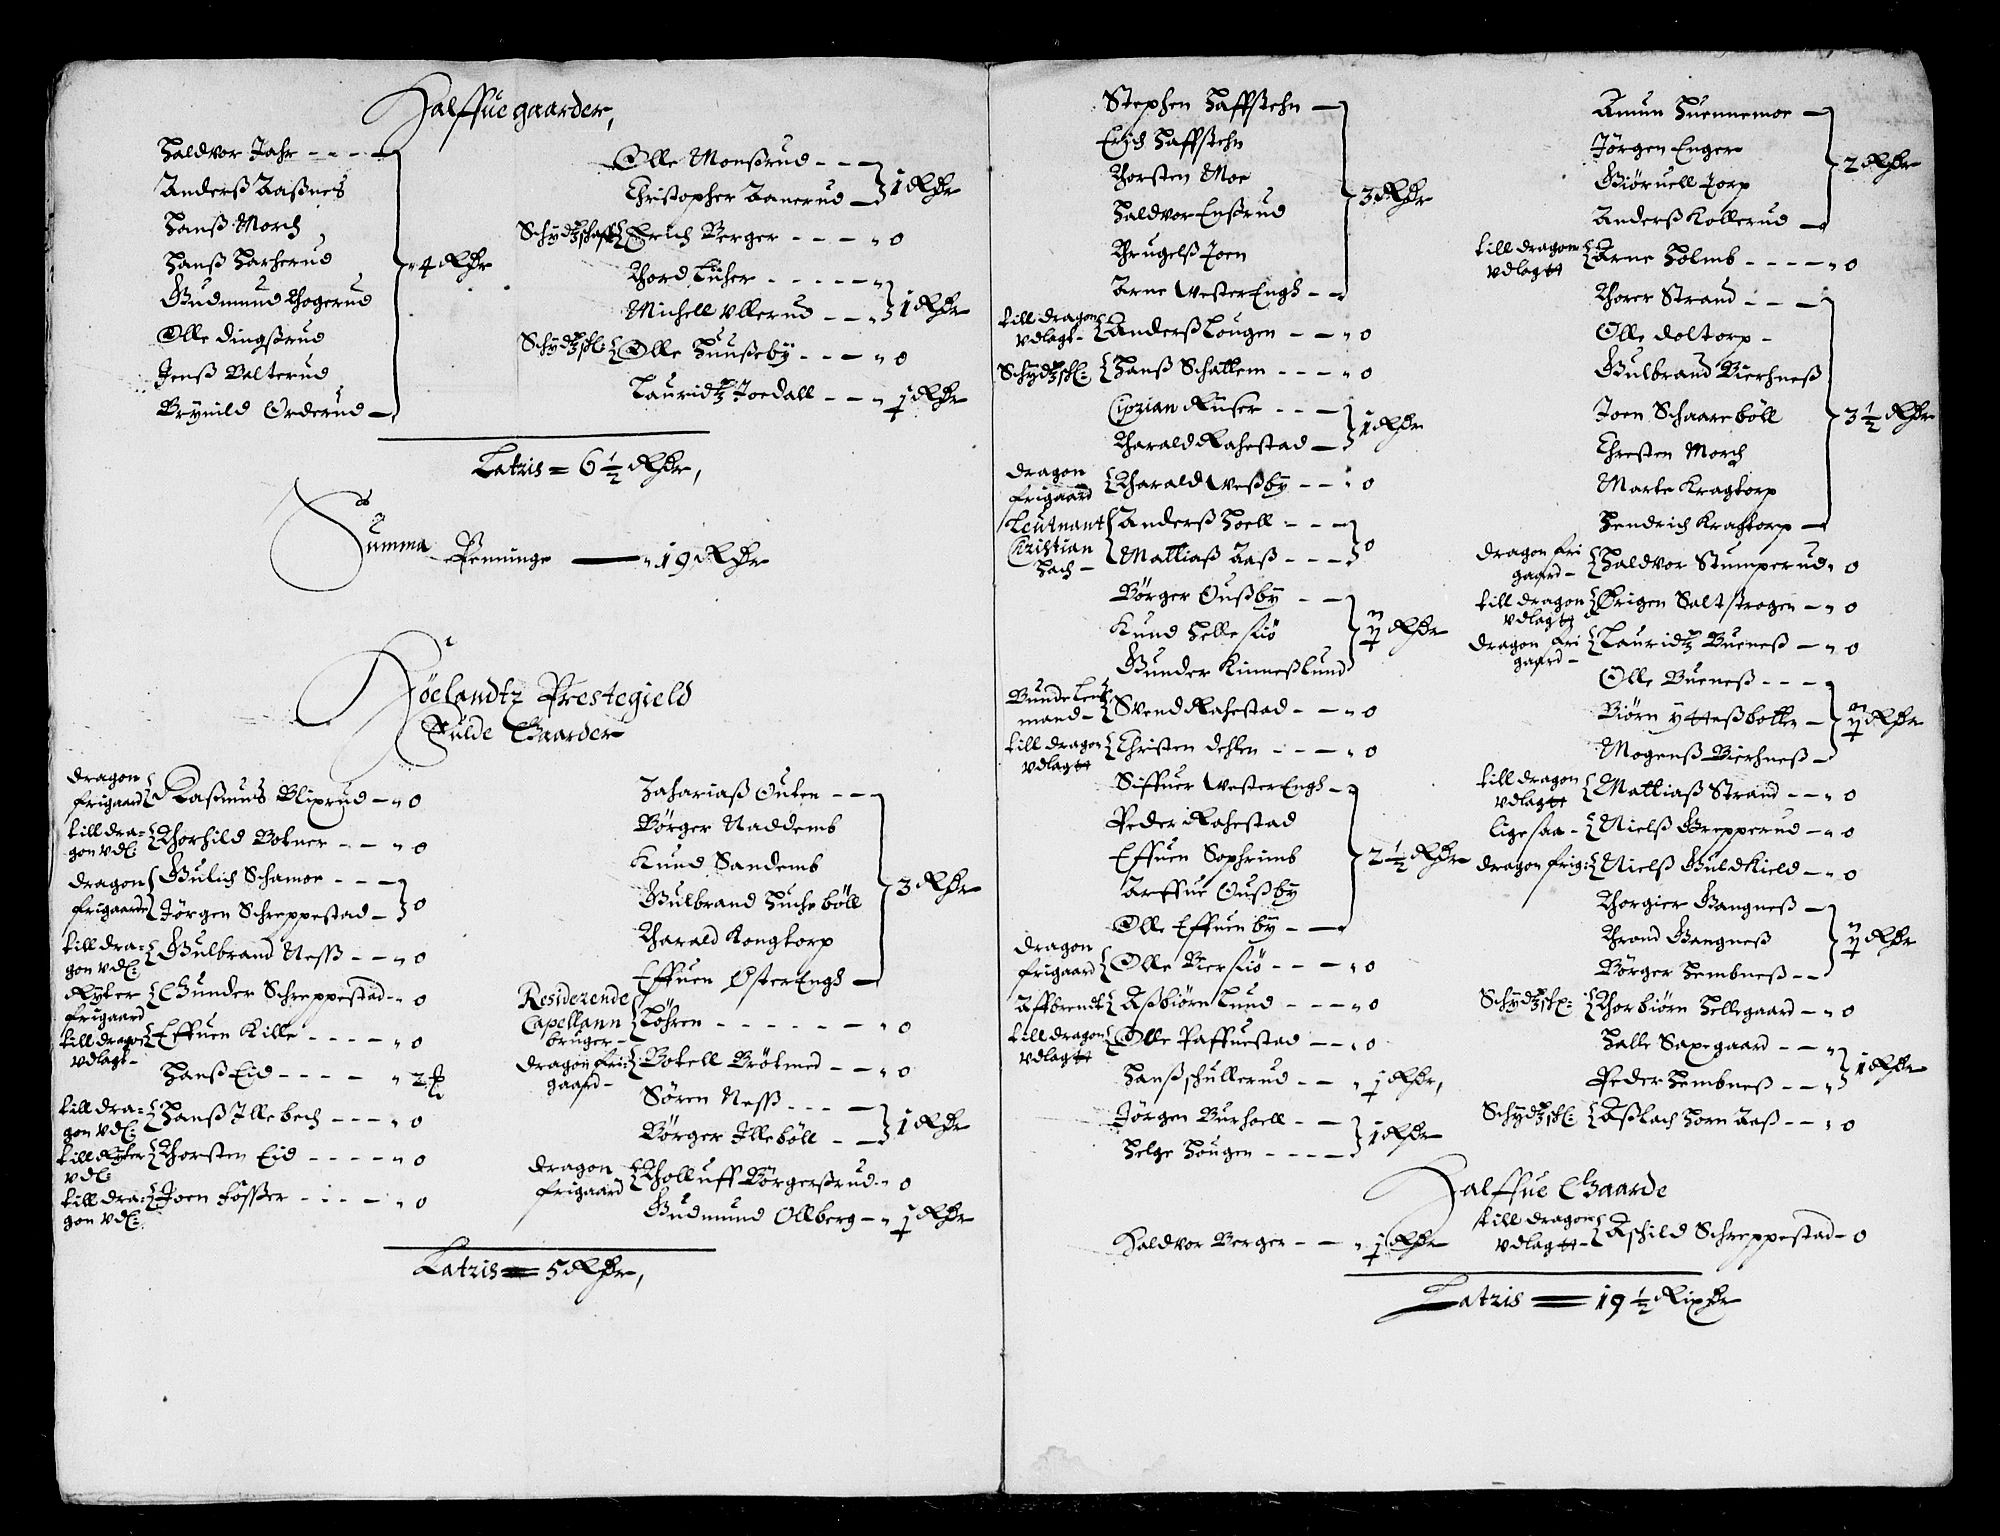 Halffue gaarder,
Haldvor Jahr - - - -
Anderß Aaßnes
Hanß Morch
Hanß Harherud
Gudmund Thogerud
Olle dingßrud
Jenß Balterud
Brynild Orderud -
4 Rdr
Olle Monßrud - - -
Christopher Aanerud -
1 Rdr
Schydtzschaff Erich Berger - - - - 0
Thord Lucher - - - - -
Michell Ullerud - - -
1 Rdr
Schydtzsk: Olle Huußeby - - - 0
Lauridtz Joedall - - - ½ Rdr
Latris = 6½ Rdr,
Summa Penninge — 19 Rdr
Höelandtz Prestegield
Fulde Gaarder
dragon frigaard Rasmus Blixrud - 0
till dragon vdl: Thorkild Botner - - 0
dragon frigaarde
Gulich Schamoe - - -
Jörgen Schreppestad -
0
till dragon vdl: Gulbrand Nesß - - 0
Ryter frigaard Gunder Schreppestad - 0
till dragon vdlagt - Effuen Kille - - - - 0
Hanß Eid - - - - 2
till dragon vdl: Hanß Illebech - - - 0
till Ryter vdl: Thorsten Eid - - - - 0
till dragon vdl: Joen Fosser - - - - 0
Zachariaß Outen - - -
Börger Naddemb
Knud Sandemb
Gulbrand Hucheböll
Tharald Kongtorp
Effuen ØsterEngh -
3 Rdr
Residerende Capellann bruger - Löhren - - - - - - 0
dragon frigaard - Botell Brötmed - - 0
Sören Nesß - - - -
Börger Illeböll - -
1 Rdr
dragon frigaard Tholluff Börgerßrud - 0
Gudmund Ollberg - ½ Rdr
Latris = 5 Rdr,
Stephen Haffstehn -
Erich Haffstehn
Thorsten Moe
Haldvor Enßrud
Thrugelß Joen
Arne WesterEngh - -
3 Rdr
till dragon vdlagt - Anderß Lougen - - - 0
Schydtzsk: Hanß Schallem - - - - 0
Ciprian Ruser - - -
Tharald Rahestad -
1 Rdr
dragon frigaard Tharald Weßby - - 0
Leutnant Christian Bach -
Anderß Hoell - - -
Mattiaß Aaß - - - -
0
Börger Oußby - -
Knud Hellesiö
Gunder Kinneßlund
1½ Rdr
Bunde Lensmand - Svend Rahestad - - 0
till dragon vdlagtt Christen dehlen - - - 0
Siffuer WesterEngh -
Peder Rahestad
Effuen Sophrimb
Arffue Oußby
Olle Effuenby - -
2½ Rdr
dragon frigaard Olle Biersiö - - - 0
Affbrendt Aßbiörn Lund - - - 0
till dragon vdlagtt Olle Paffuestad - - 0
Hanß schullerud - - ½ Rdr,
Jörgen Burholl - -
Helge Hougen - - - -
1 Rdr
Haldvor Berger - - ½ Rdr
Amun Huennemoe -
Jörgen Enger
Giöruell Jorp
Anderß Kollerud -
2 Rdr
till dragon vdlagtt Arne Holmb - - - - 0
Thorer Strand - - -
Olle doltorp -
Gulbrand Bierkneß
Joen Schaareböll
Chresten Morch
Marte Kragtorp
Hendrich Kragtorp -
3½ Rdr
dragon frigaard - Haldvor Stumperud 0
till dragon vdlagtt Örigen Saltstrogen - 0
dragon frigaard - Lauridtz Bueneß - 0
Olle Bueneß - - -
Biörn ytteßbotten -
Mogenß Bierkneß -
1½ Rdr
till dragon vdlagtt Mattiaß Strand - - 0
lige saa - Nielß Grepperud - 0
dragon frig: Nielß Guldkield - 0
Thorgier Gangneß -
Thrond Gangneß
Börger Hembneß - -
1½ Rdr
Schydtzsk: Thorbiörn Hellegaard - 0
Halle Saxegaard - -
Peder Hembneß - -
1 Rdr
Schydtzsk: Aßlach Hornaaß - - 0
Halffue Gaarde
till dragon vdlagtt - Aschild Schreppestad - 0
Latris = 19½ Rixdr